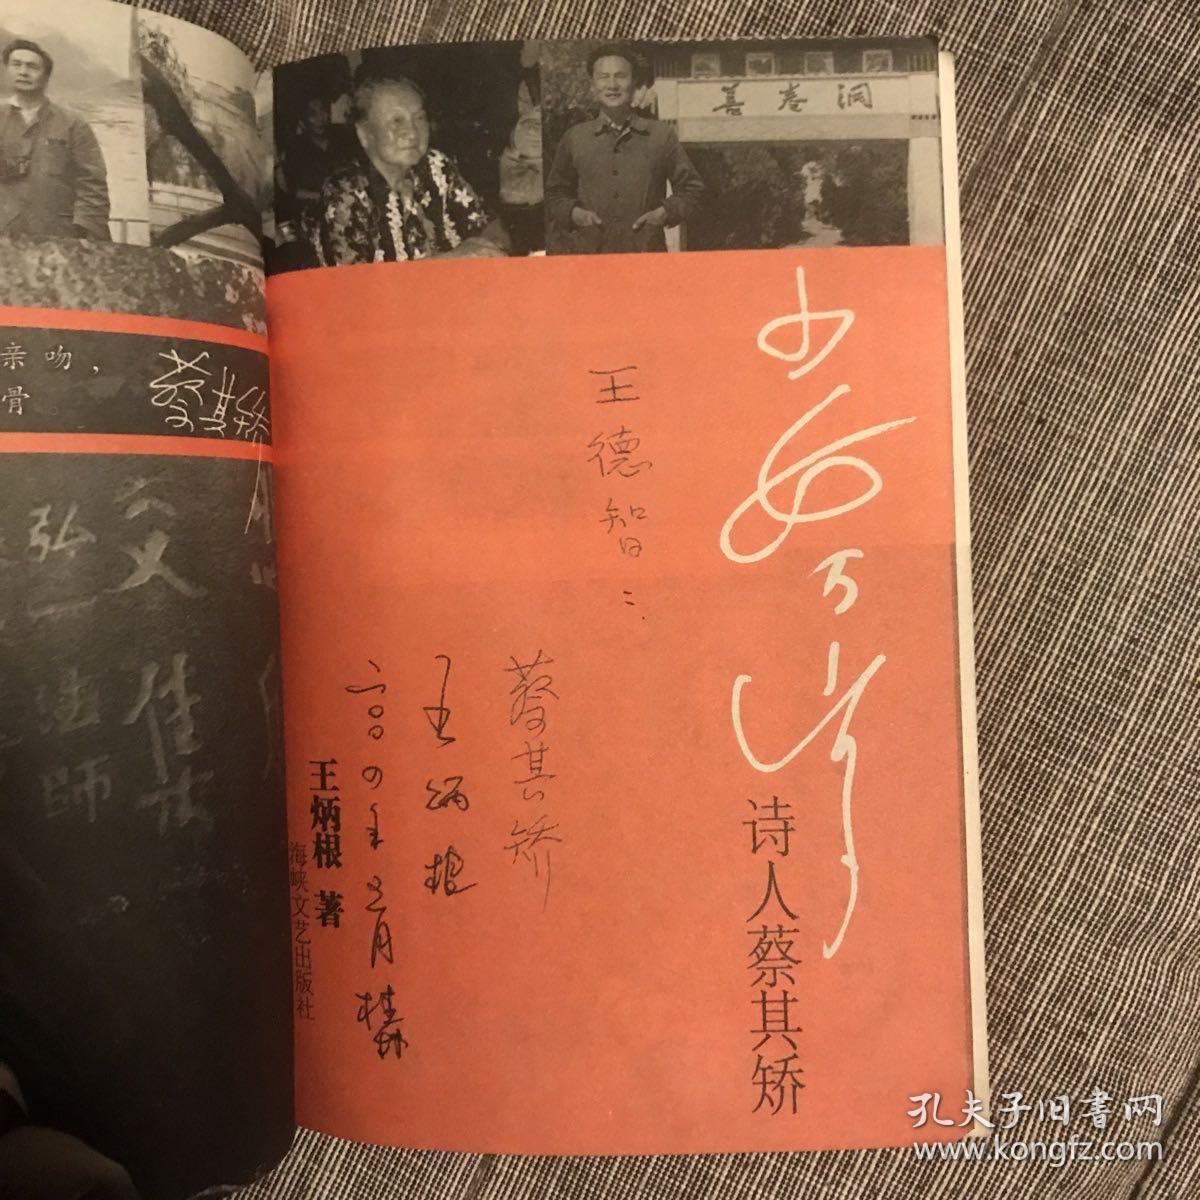 善卷洞
少女万岁
诗人蔡其矫
王德智：
蔡其矫
王炳根
二〇〇四年
王炳根 著
海峡文艺出版社
亲吻，
骨
蔡其矫
弘一法師
孔夫子旧書网
www.kongfz.com